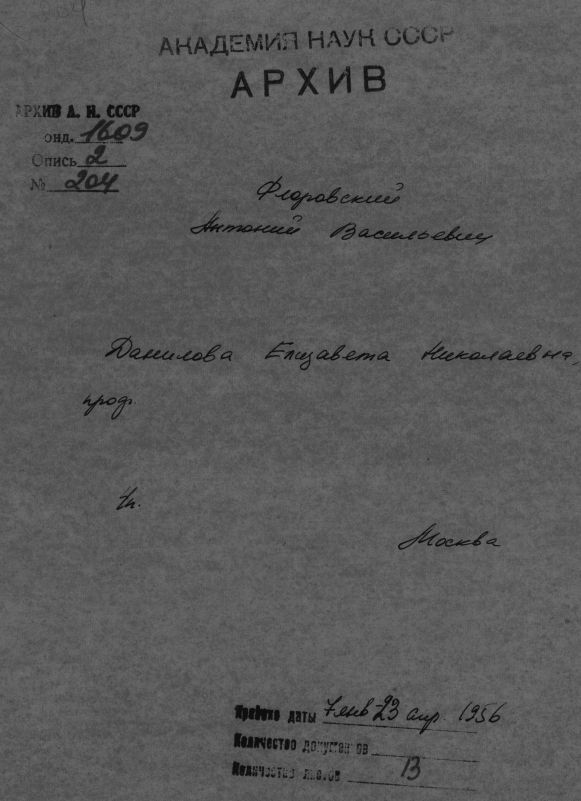 АКАДЕМИЯ НАУК СССР
АРХИВ
АРХИВ А. Н. СССР
онд. 1609
Опись 2
№ 204
Флоровский
Антоний Васильевич
Данилова Елизавета Николаевна,
проф.
Москва
Крайние даты 7 янв-23 апр. 1956
Количество документов
Количество листов 13